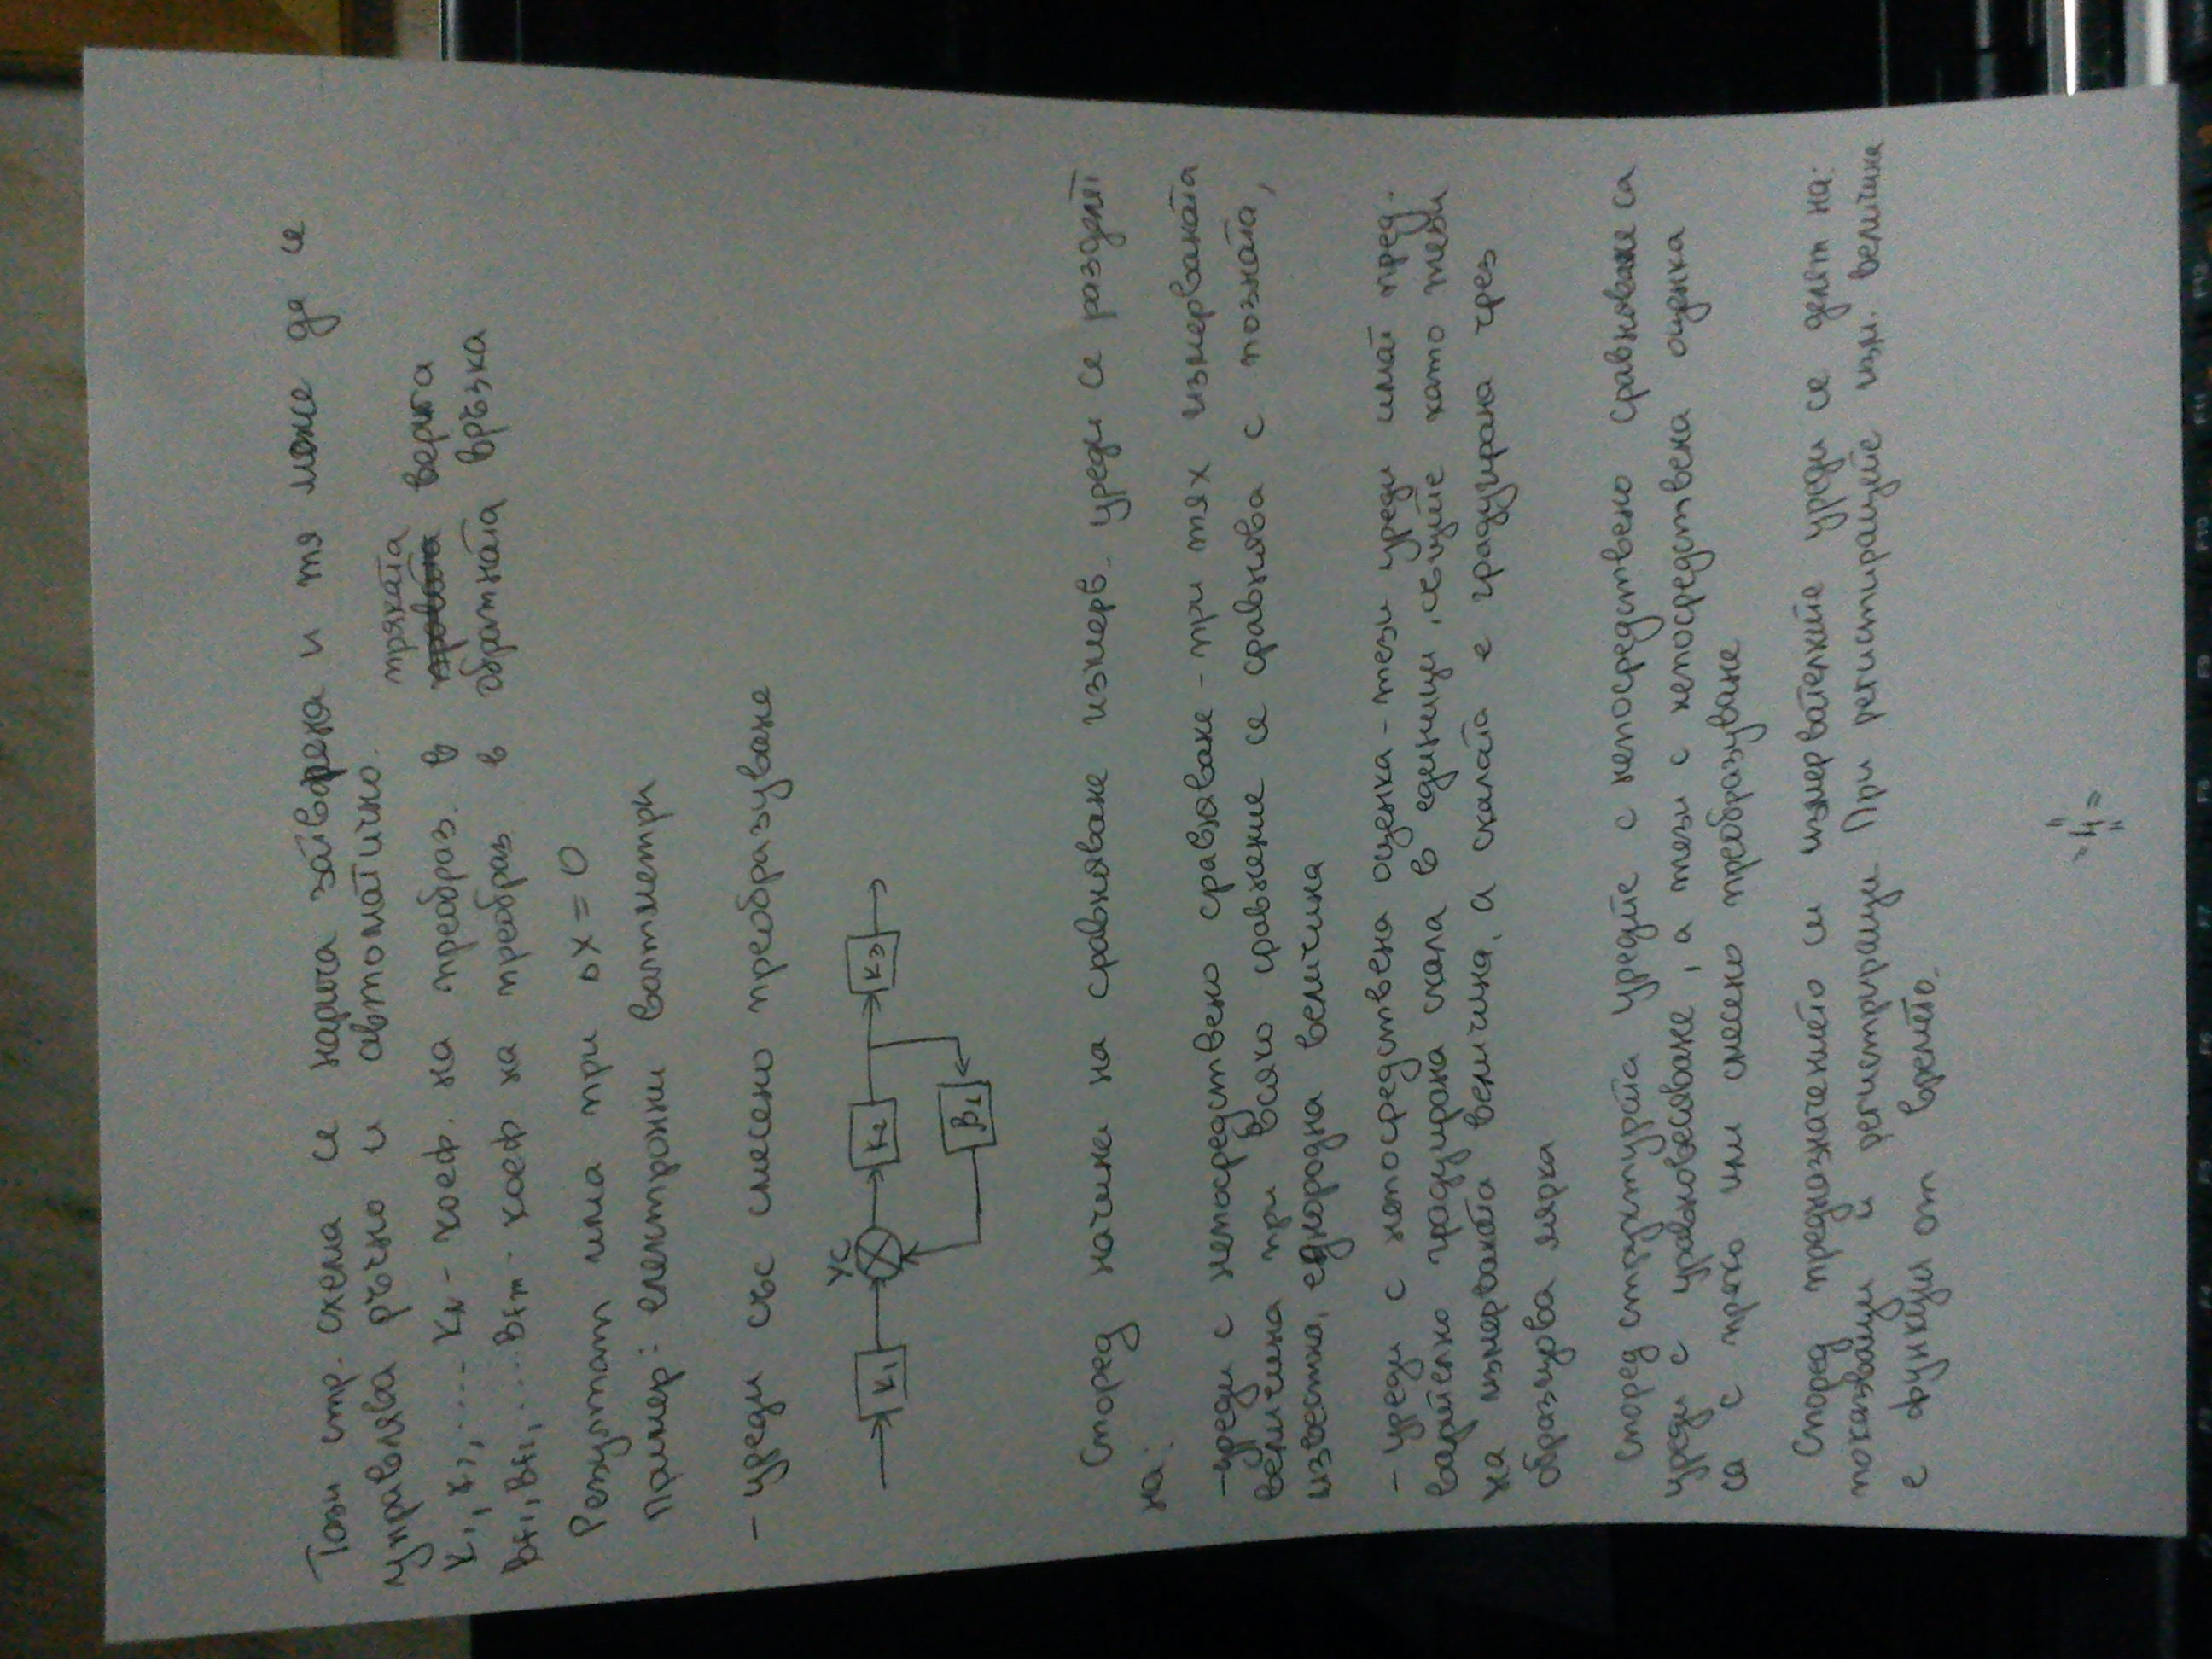 Тази стр. схема се нарича затворена и тя може да се
управлява ръчно и автоматично.
K1, K2, .... Kn - коеф. на преобраз. в пряката верига
Bf1, Bf2, ... Bfm - коеф на преобраз. в обратната връзка
Резултат има при ΔX = 0
Пример: електронни валтметри
- уреди със смесено преобразуване
УС
K1 K2 K3
B2
Според начина на сравняване измерв. уреди се разделят
на:
- уреди с непосредствено сравняване - при тях измерваната
величина при всяко сравнение се сравнява с позната,
известна, еднородна величина
- уреди с непосредствена оценка - тези уреди имат пред-
варително градуирана скала в единици, същите като тези
на измерваната величина, а скалата е градуирана чрез
образцова мярка
Според структурата уредите с непосредствено сравняване са
уреди с уравновесяване, а тези с непосредствена оценка
са с право или смесено преобразуване
Според предназначението си измервателните уреди се делят на:
показващи и регистриращи. При регистриращите изм. величина
е функция от времето.
= 4 =